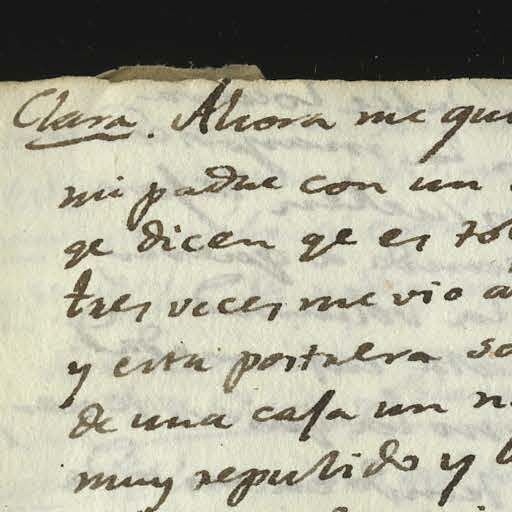 Clara. Ahora me qui
mi padre con un
qe dicen qe es to
tres veces me vio a
y esta postrera so
de una casa un n
muy repulido y l